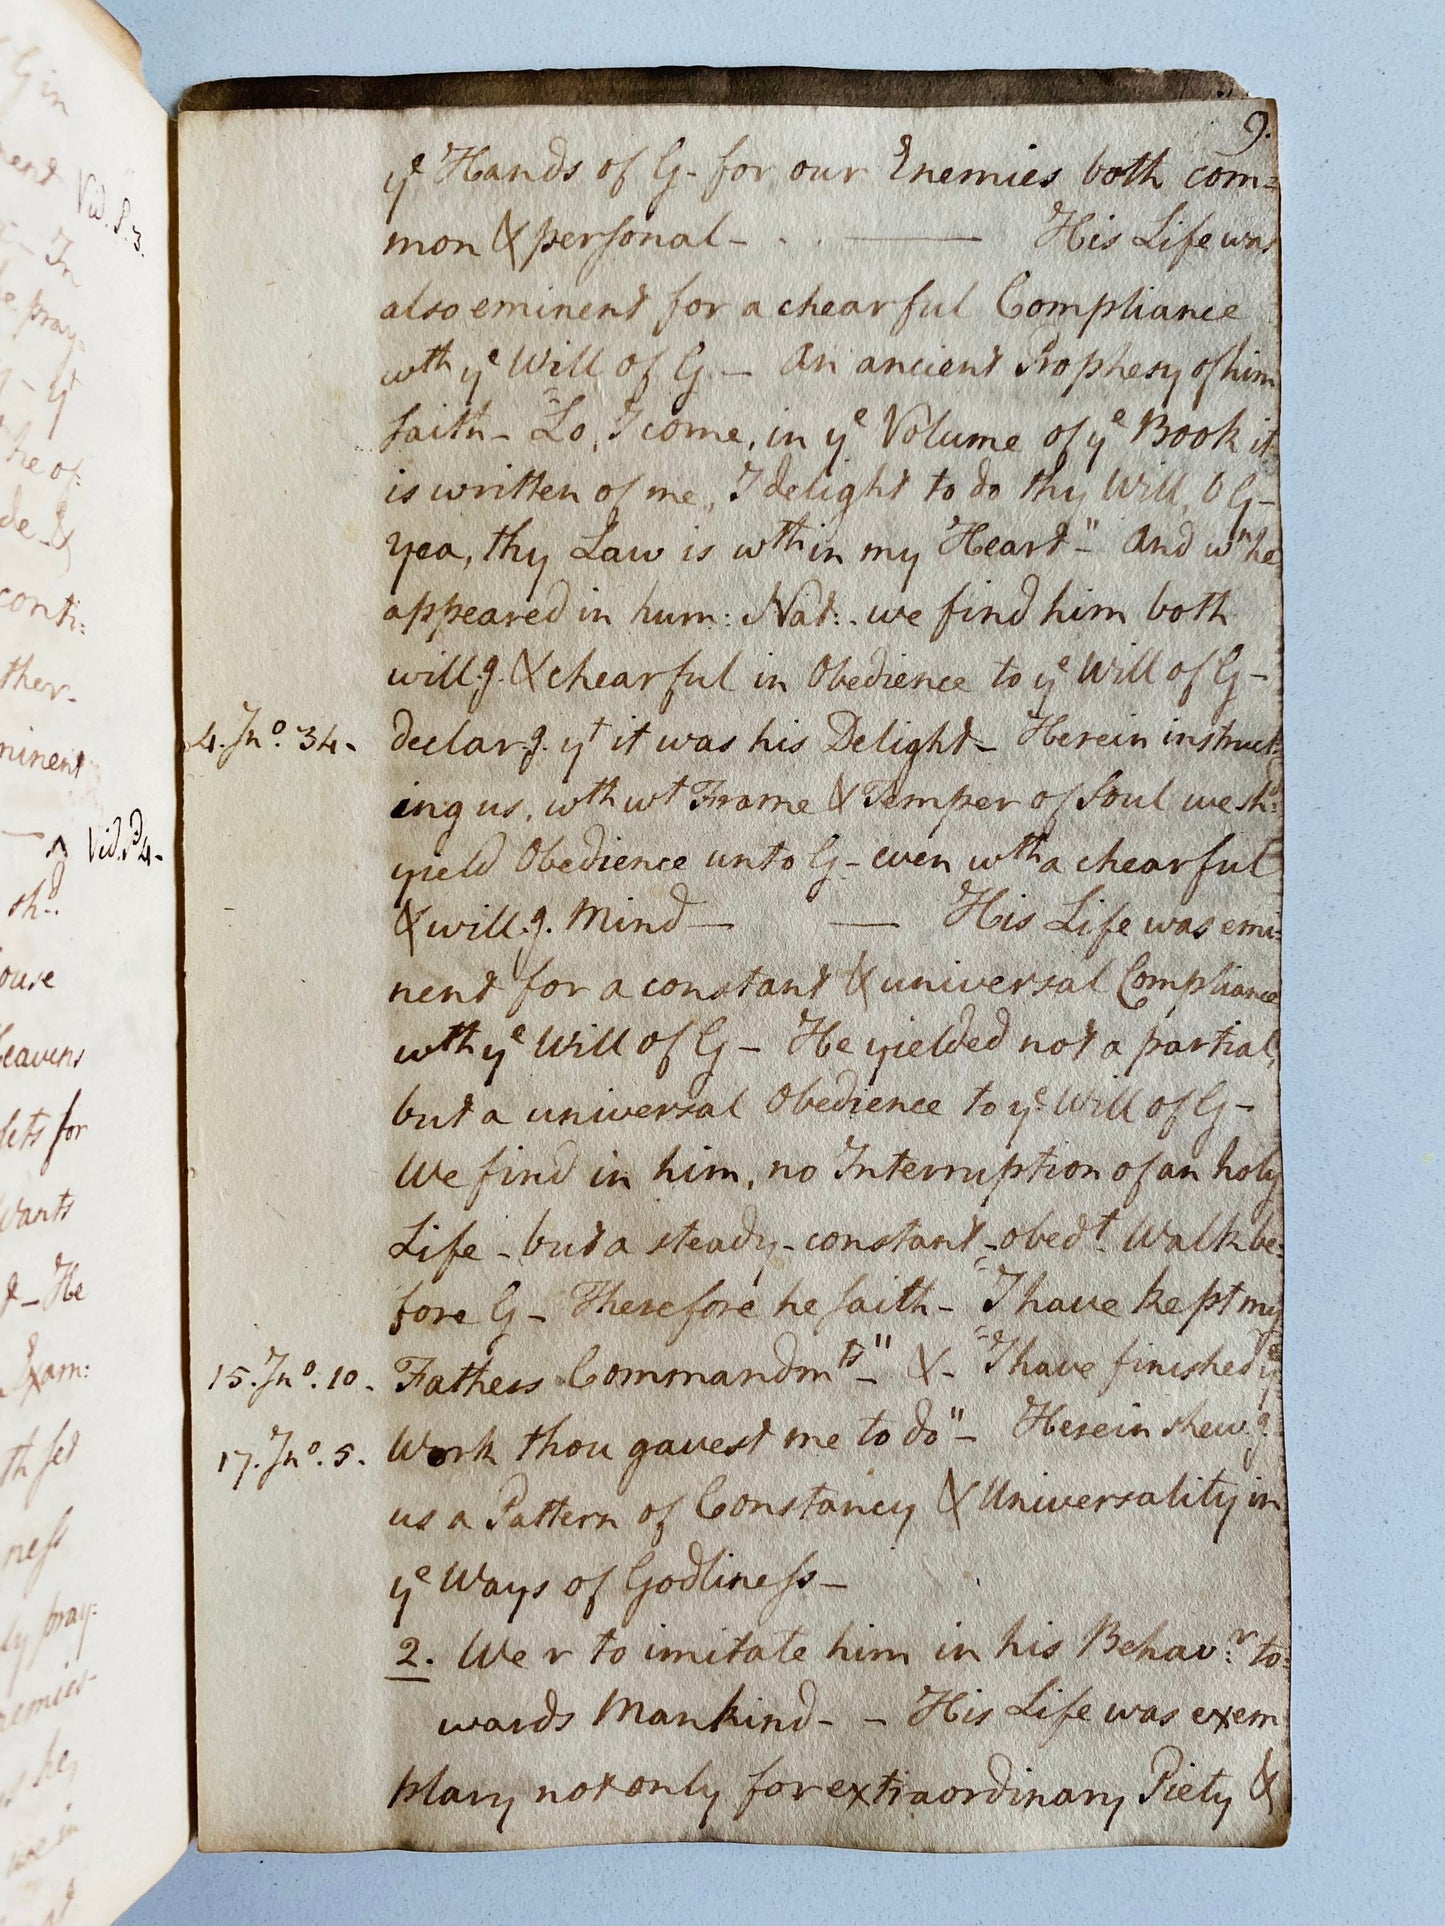 9.
yᵉ Hands of G- for our Enemies both com=
mon & personal - . . —— His Life was
also eminent for a chearful Compliance
wth yᵉ Will of G - An ancient Prophesy of him
saith - "Lo, I come, in yᵉ Volume of yᵉ Book it
is written of me, I delight to do thy Will, O G-
yea, thy Law is wthin my Heart"- And wⁿ he
appeared in hum: Nat:. we find him both
will.g. & chearful in Obedience to yᵉ Will of G-
4. Jnº. 34- declar.g. yᵗ it was his Delight- Herein instruct=
ing us, wth wt Frame & Temper of Soul we shᵈ
yield Obedience unto G- even wth a chearful
& will.g. Mind — — His Life was emi=
nent for a constant & universal Compliance
wth yᵉ Will of G - He yielded not a partial,
but a universal Obedience to yᵉ Will of G-
We find in him, no Interruption of an holy
Life - but a steady - constant - obedᵗ. Walk be=
fore G - Therefore he saith - "I have kept my
15. Jnº. 10. Fathers Commandmᵗˢ"- &- "I have finished yᵉ
17. Jnº. 5. Work thou gavest me to do"- Herein shew.g.
us a Pattern of Constancy & Universality in
yᵉ Ways of Godliness -
2. We r to imitate him in his Behav:ʳ to=
wards Mankind - - His Life was exem
plary not only for extraordinary Piety &
Vid. P. 3.
pray=
conti=
ther-
minent
Vid. P 4-
shᵈ.
Heavens
for
Wants
- He
Exam:
th set
ness
pray=
we in